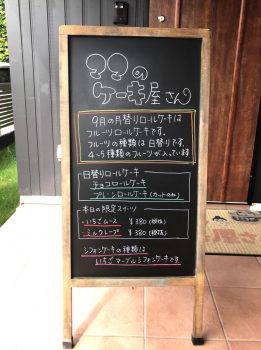 ママの
ケーキ屋さん
9月の月替りロールケーキは
フルーツロールケーキです。
フルーツの種類は日替りです。
4~5種類のフルーツが入っています
日替りロールケーキ
チョコロールケーキ
プレーンロールケーキ(カットのみ)
本日の限定スイーツ
・いちごムース ¥380(税抜)
・ミルクレープ ¥380(税抜)
シフォンケーキの種類は
いちごマーブルシフォンケーキです